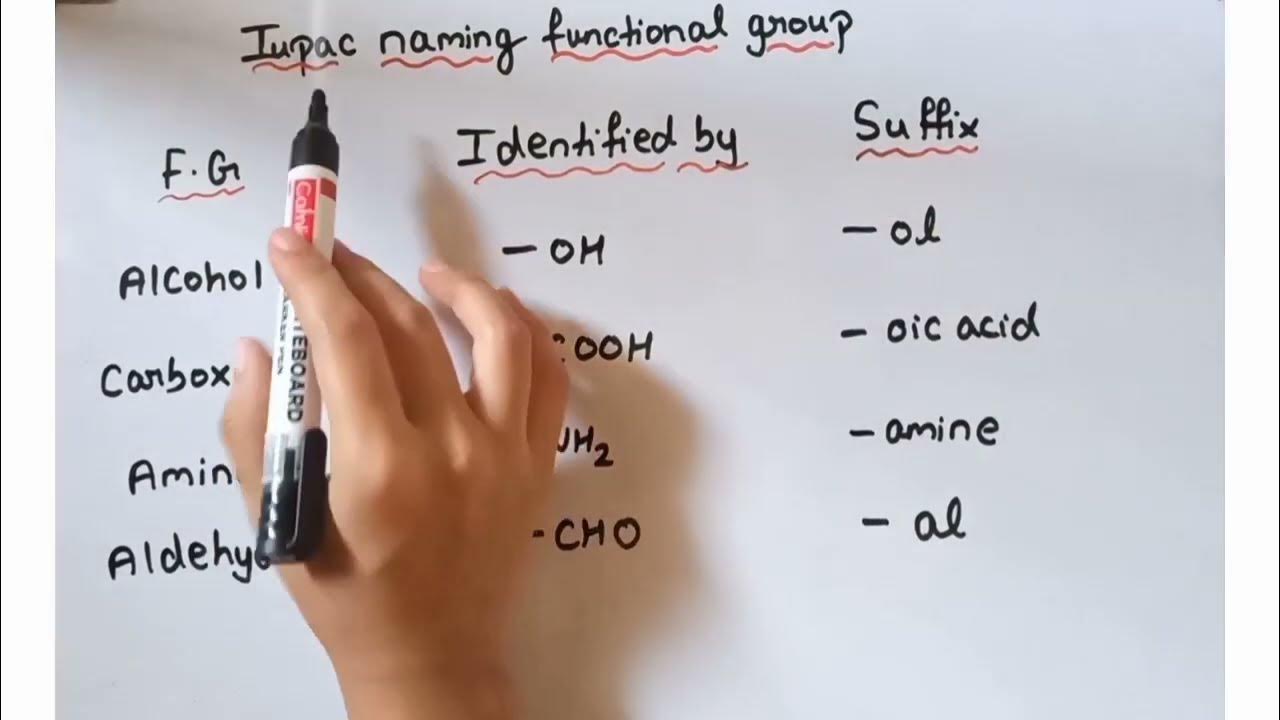 Iupac naming functional group
F.G Identified by Suffix
Alcohol - OH - ol
Carbox OOH - oic acid
Amin H2 - amine
Aldehy - CHO - al
EBOARD